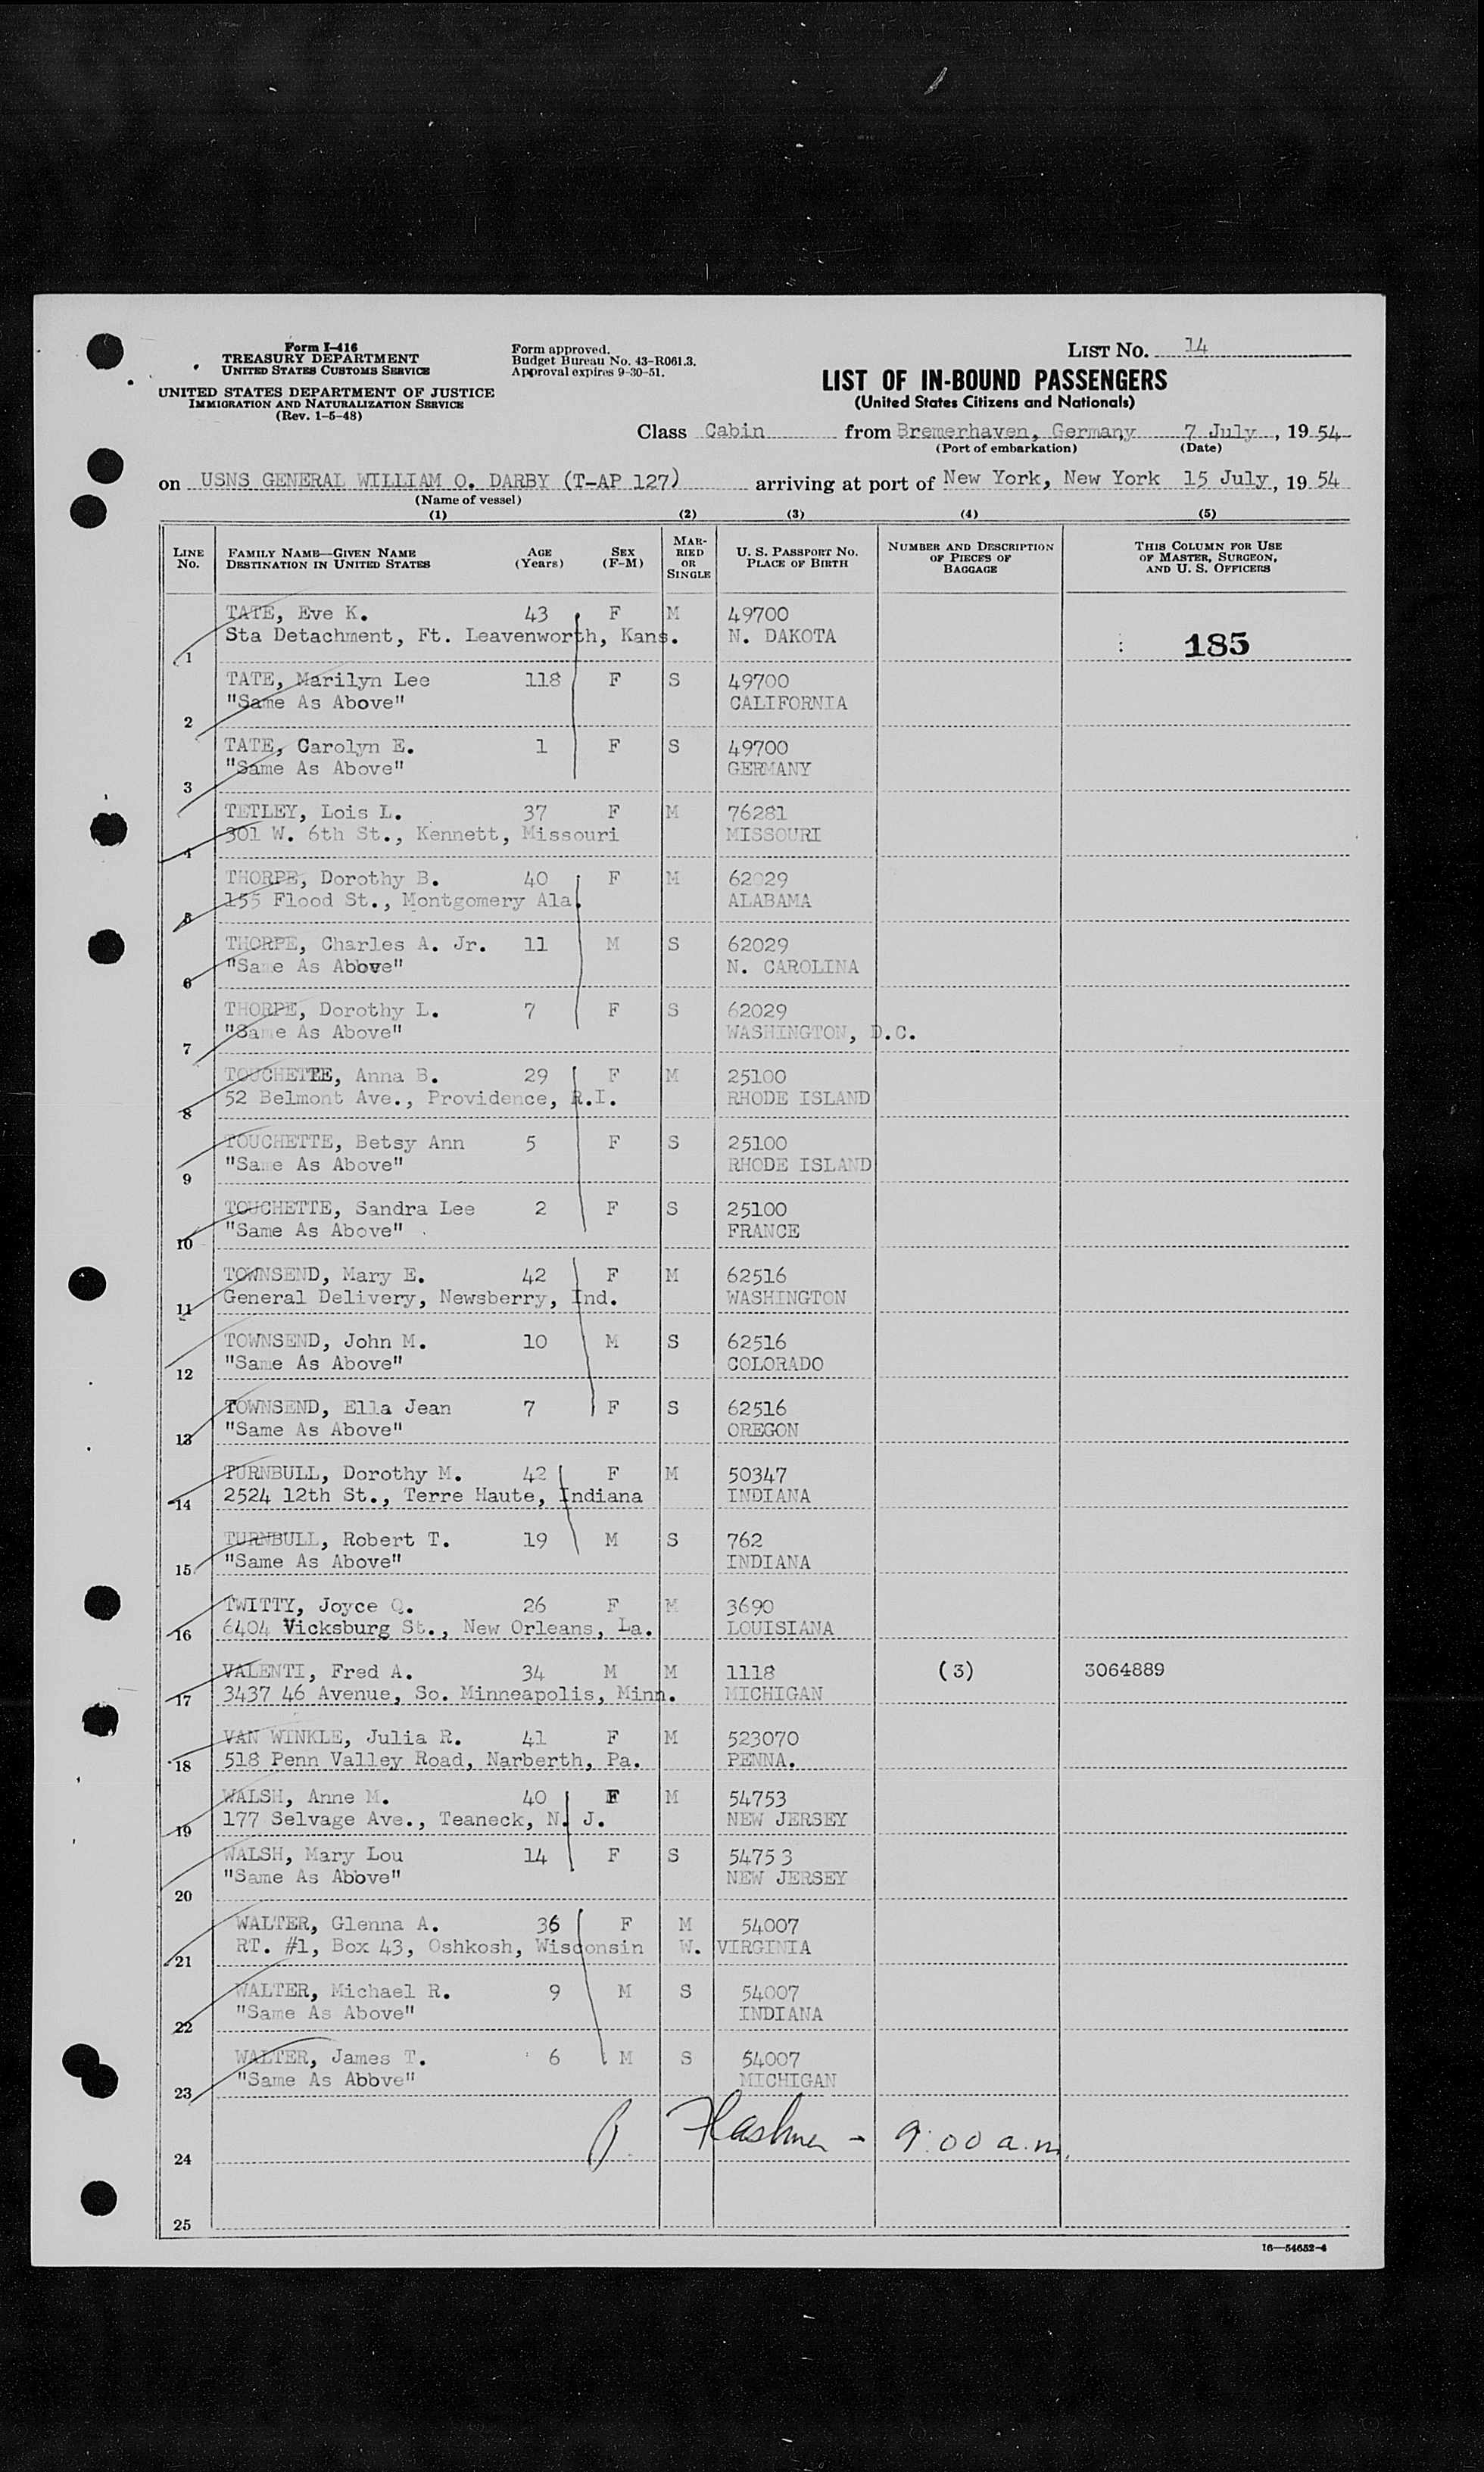 Form I-416
TREASURY DEPARTMENT
UNITED STATES CUSTOMS SERVICE
UNITED STATES DEPARTMENT OF JUSTICE
IMMIGRATION AND NATURALIZATION SERVICE
(Rev. 1-5-48)
Form approved.
Budget Bureau No. 43-R061.3.
Approval expires 9-30-51.
LIST NO. 14
LIST OF IN-BOUND PASSENGERS
(United States Citizens and Nationals)
Class Cabin from Bremerhaven, Germany 7 July, 1954
(Port of embarkation) (Date)
on USNS GENERAL WILLIAM O. DARBY (T-AP 127) arriving at port of New York, New York 15 July, 1954
(Name of vessel)
(1) (2) (3) (4) (5)
LINE NO. FAMILY NAME—GIVEN NAME DESTINATION IN UNITED STATES AGE (Years) SEX (F-M) MARRIED OR SINGLE U. S. PASSPORT NO. PLACE OF BIRTH NUMBER AND DESCRIPTION OF PIECES OF BAGGAGE THIS COLUMN FOR USE OF MASTER, SURGEON, AND U. S. OFFICERS
TATE, Eve K. 43 F M 49700
1 Sta Detachment, Ft. Leavenworth, Kans. N. DAKOTA : 185
TATE, Marilyn Lee 118 F S 49700
2 "Same As Above" CALIFORNIA
TATE, Carolyn E. 1 F S 49700
3 "Same As Above" GERMANY
TETLEY, Lois L. 37 F M 76281
4 301 W. 6th St., Kennett, Missouri MISSOURI
THORPE, Dorothy B. 40 F M 62029
5 155 Flood St., Montgomery Ala. ALABAMA
THORPE, Charles A. Jr. 11 M S 62029
6 "Same As Above" N. CAROLINA
THORPE, Dorothy L. 7 F S 62029
7 "Same As Above" WASHINGTON, D.C.
TOUCHETTE, Anna B. 29 F M 25100
8 52 Belmont Ave., Providence, R.I. RHODE ISLAND
TOUCHETTE, Betsy Ann 5 F S 25100
9 "Same As Above" RHODE ISLAND
TOUCHETTE, Sandra Lee 2 F S 25100
10 "Same As Above" FRANCE
TOWNSEND, Mary E. 42 F M 62516
11 General Delivery, Newsberry, Ind. WASHINGTON
TOWNSEND, John M. 10 M S 62516
12 "Same As Above" COLORADO
TOWNSEND, Ella Jean 7 F S 62516
13 "Same As Above" OREGON
TURNBULL, Dorothy M. 42 F M 50347
14 2524 12th St., Terre Haute, Indiana INDIANA
TURNBULL, Robert T. 19 M S 762
15 "Same As Above" INDIANA
TWITTY, Joyce Q. 26 F M 3690
16 6404 Vicksburg St., New Orleans, La. LOUISIANA
VALENTI, Fred A. 34 M M 1118 (3) 3064889
17 3437 46 Avenue, So. Minneapolis, Minn. MICHIGAN
VAN WINKLE, Julia R. 41 F M 523070
18 518 Penn Valley Road, Narberth, Pa. PENNA.
WALSH, Anne M. 40 F M 54753
19 177 Selvage Ave., Teaneck, N. J. NEW JERSEY
WALSH, Mary Lou 14 F S 54753
20 "Same As Above" NEW JERSEY
WALTER, Glenna A. 36 F M 54007
21 RT. #1, Box 43, Oshkosh, Wisconsin W. VIRGINIA
WALTER, Michael R. 9 M S 54007
22 "Same As Above" INDIANA
WALTER, James T. 6 M S 54007
23 "Same As Above" MICHIGAN
24 - 9:00 a.m.
25
16—54652-4